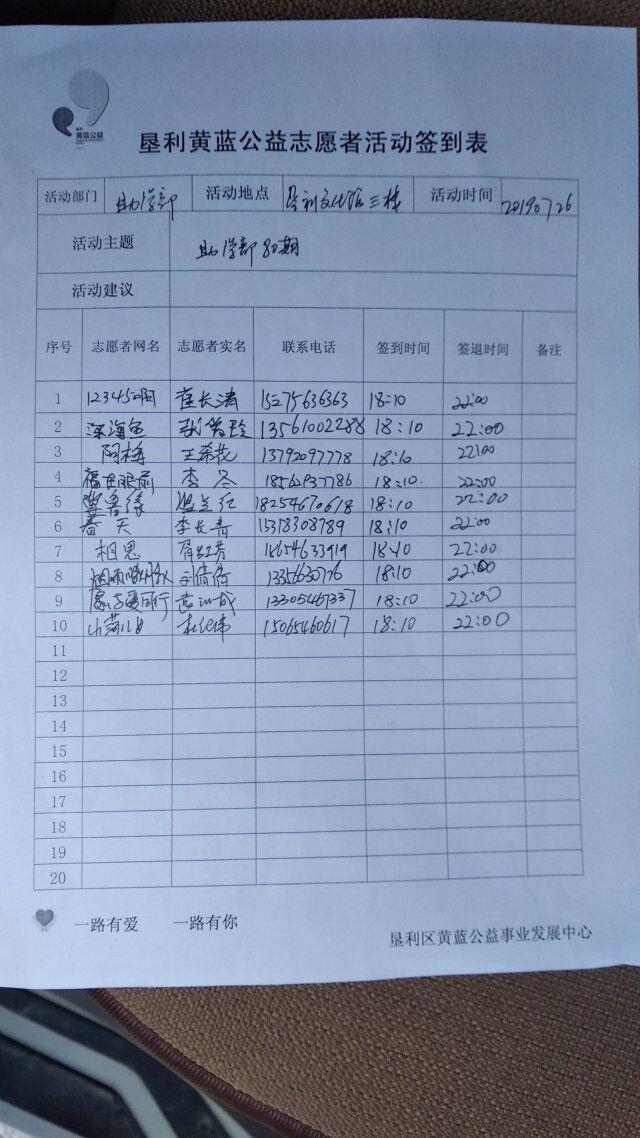 黄蓝公益
垦利黄蓝公益志愿者活动签到表
活动部门 助学部 活动地点 垦利文化馆三楼 活动时间 20190726
活动主题 助学部80期
活动建议
序号 志愿者网名 志愿者实名 联系电话 签到时间 签退时间 备注
1 长涛 15275636363 18:10 22:00
2 深海鱼 13561002288 18:10 22:00
3 阿梅 王希花 13792097778 18:10 22:00
4 福在眼前 李冬 18562937786 18:10 22:00
5 18254670618 18:10 22:00
6 蓝天 李长青 15318308789 18:10 22:00
7 相思 18654633919 18:10 22:00
8 刘倩倩 18:10 22:00
9 13305467337 18:10 22:00
10 15065460617 18:10 22:00
11
12
13
14
15
16
17
18
19
20
一路有爱 一路有你
垦利区黄蓝公益事业发展中心